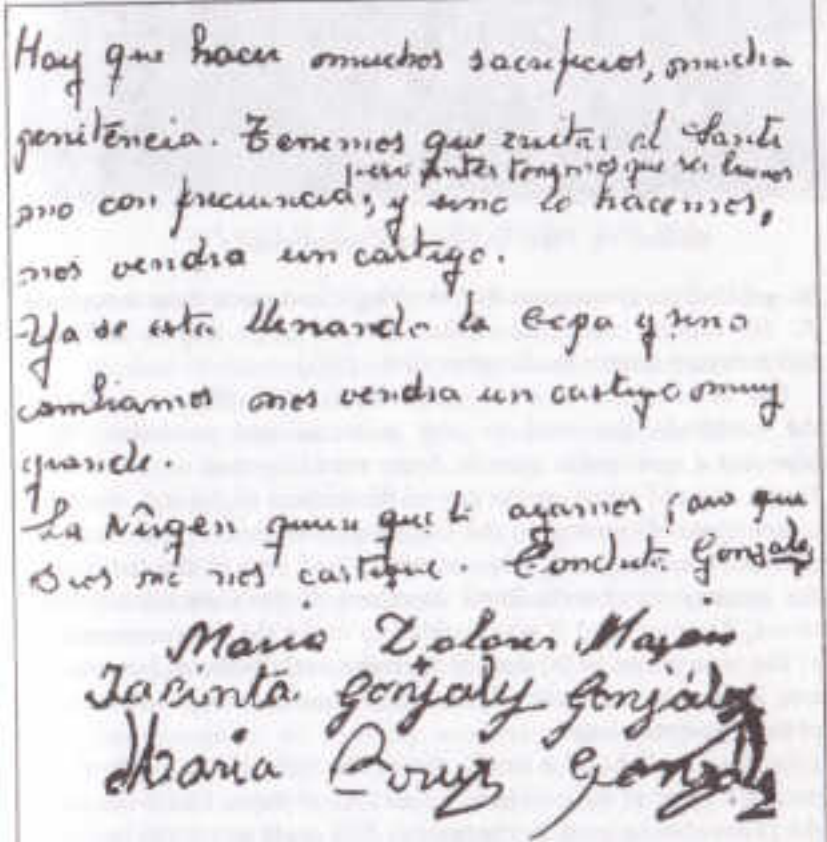 Hay que hacer muchos sacrificios, mucha
penitencia. Tenemos que visitar al Santi
pero antes tenemos que ser buenos
mo con frecuencia, y sino lo hacemos,
nos vendra un castigo.
Ya se esta llenando la copa y sino
cambiamos nos vendra un castigo muy
grande.
La Virgen quiere que lo agamos para que
Dios no nos castigue. Conchita Gonzalez
Maria Dolores Mazon
Jacinta Gonzalez González
Maria Cruz Gonzalez